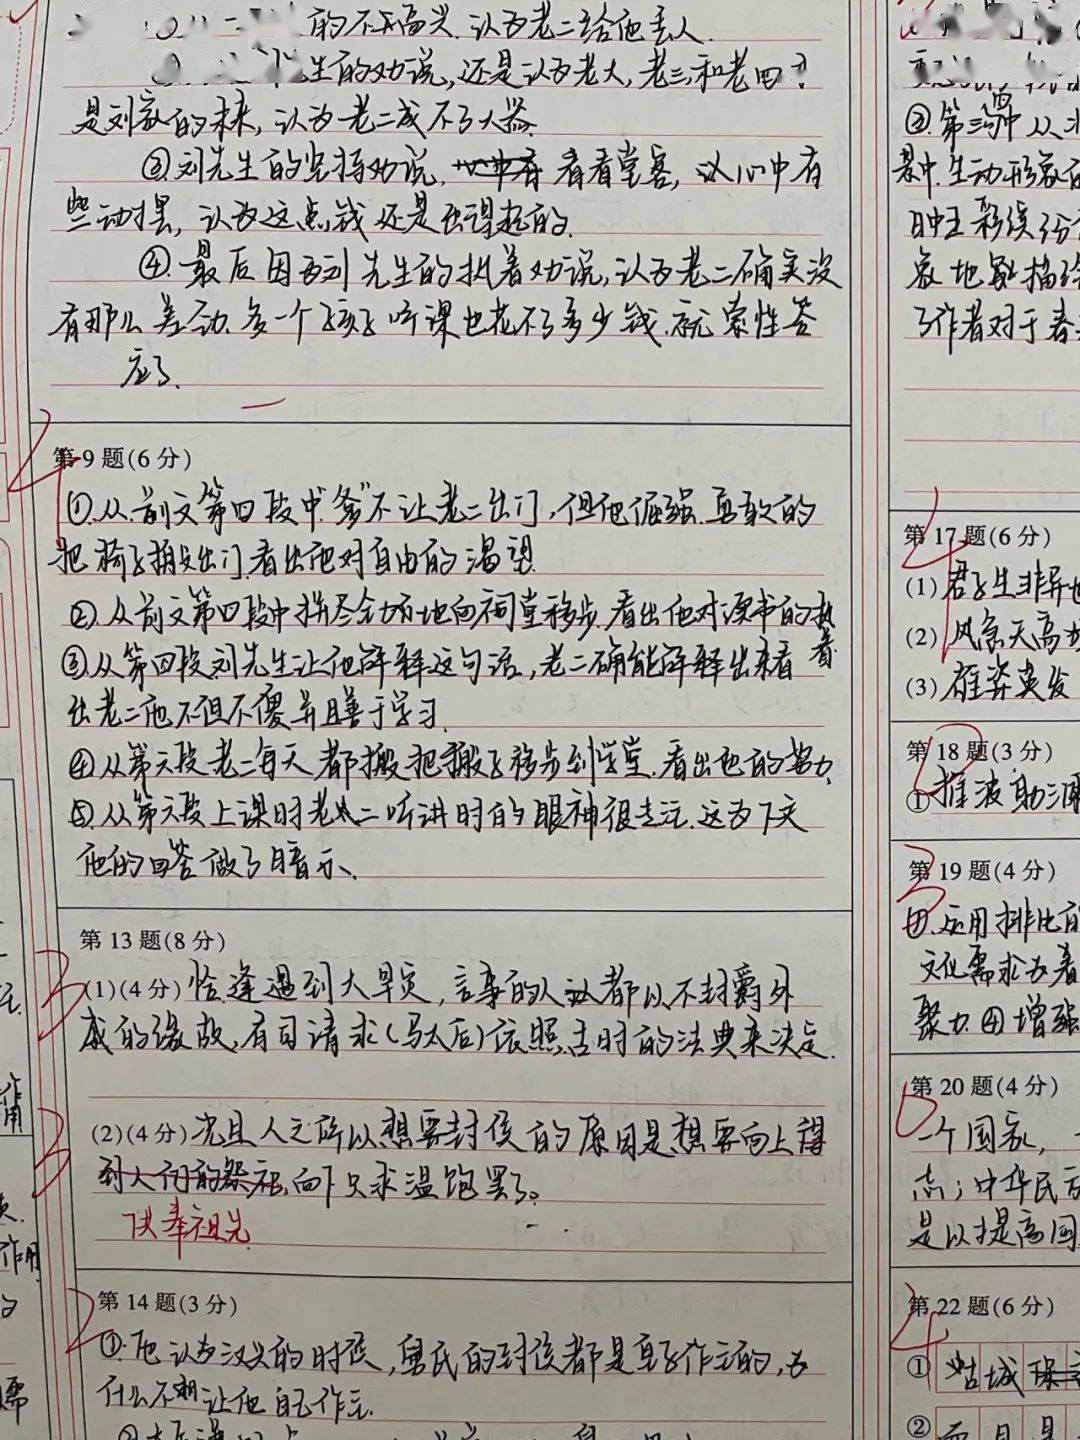 的不高兴.认为老二给他丢人.
生的劝说,还是认为老大,老三和老四才
是刘家的未来,认为老二成不了大器.
③刘先生的坚持劝说,看看堂客,心中有
些动摆,认为这点钱还是出得起的.
④.最后因为刘先生的执着劝说,认为老二确实没
有那么差劲.多一个孩子听课也花不了多少钱.就索性答
应了.
第9题(6分)
①.从前文第四段中"爹"不让老二出门,但他倔强.勇敢的
把椅子搬出门.看出他对自由的渴望.
②.从前文第四段中拼尽全力地向祠堂移步.看出他对读书的执着
③从第四段刘先生让他解释这句话,老二确能解释出来看
出老二他不但不傻并且善于学习.
④从第六段老二每天都搬把搬子移步到学堂.看出他的努力.
⑤.从第六段上课时老二听讲时的眼神很专注.这为下文
他的回答做了暗示.
第13题(8分)
(1)(4分)恰逢遇到大旱灾,言事的人都以不封爵外
戚的缘故,有司请求(马太后)依照旧时的法典来决定.
(2)(4分)况且人之所以想要封侯的原因是想要向上得
到人们的祭祀,向下只求温饱罢了。
供奉祖先
第14题(3分)
①.他认为汉兴的时侯,舅氏的封侯都是皇子作主的,为
什么不让他自己作主.
②.第三
景中.生动形象
了作者对于春
第17题(6分)
(1)君子生非异也
(2)风急天高
(3)雄姿英发
第18题(3分)
①推波助澜
第19题(4分)
①.运用排比的
文化需求为着
聚力.④增强
第20题(4分)
一个国家,
志;中华民族
是以提高国
第22题(6分)
①姑城
②而且是
作用